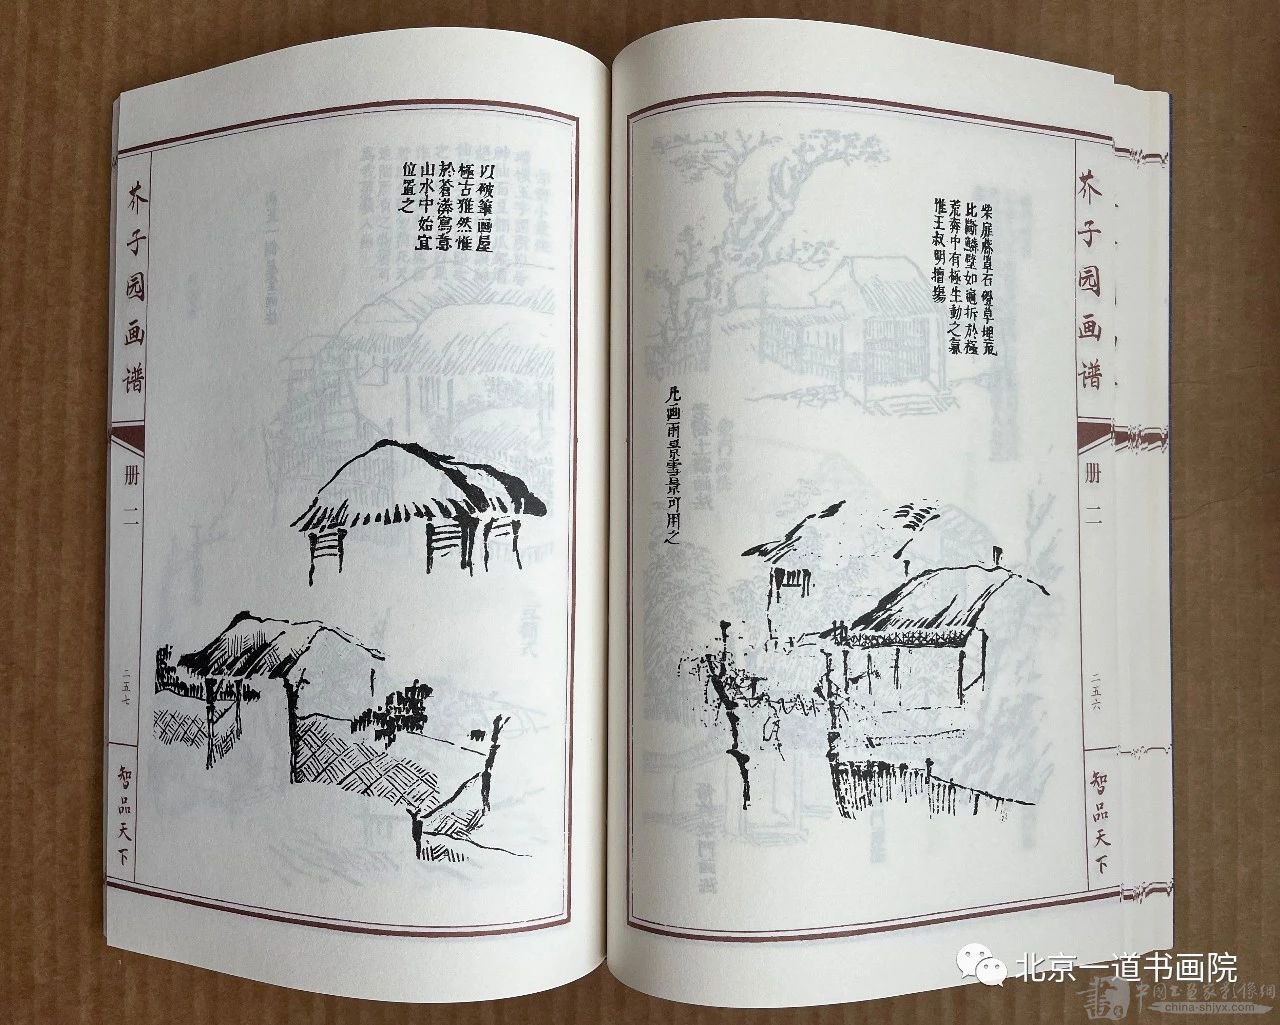 芥子园画谱
册二
二五六
智品天下
柴扉石磴草埋瓦
比斷鱗壁如龜拆於極
荒奔中有極生動之氣
惟王叔明擅場
凡画雨景雪景可用之
以破筆画屋
極古雅然惟
於蒼漭寫意
山水中始宜
位置之
芥子园画谱
册二
二五七
智品天下
北京一道书画院
中国书画家影像網
china-shjyx.com